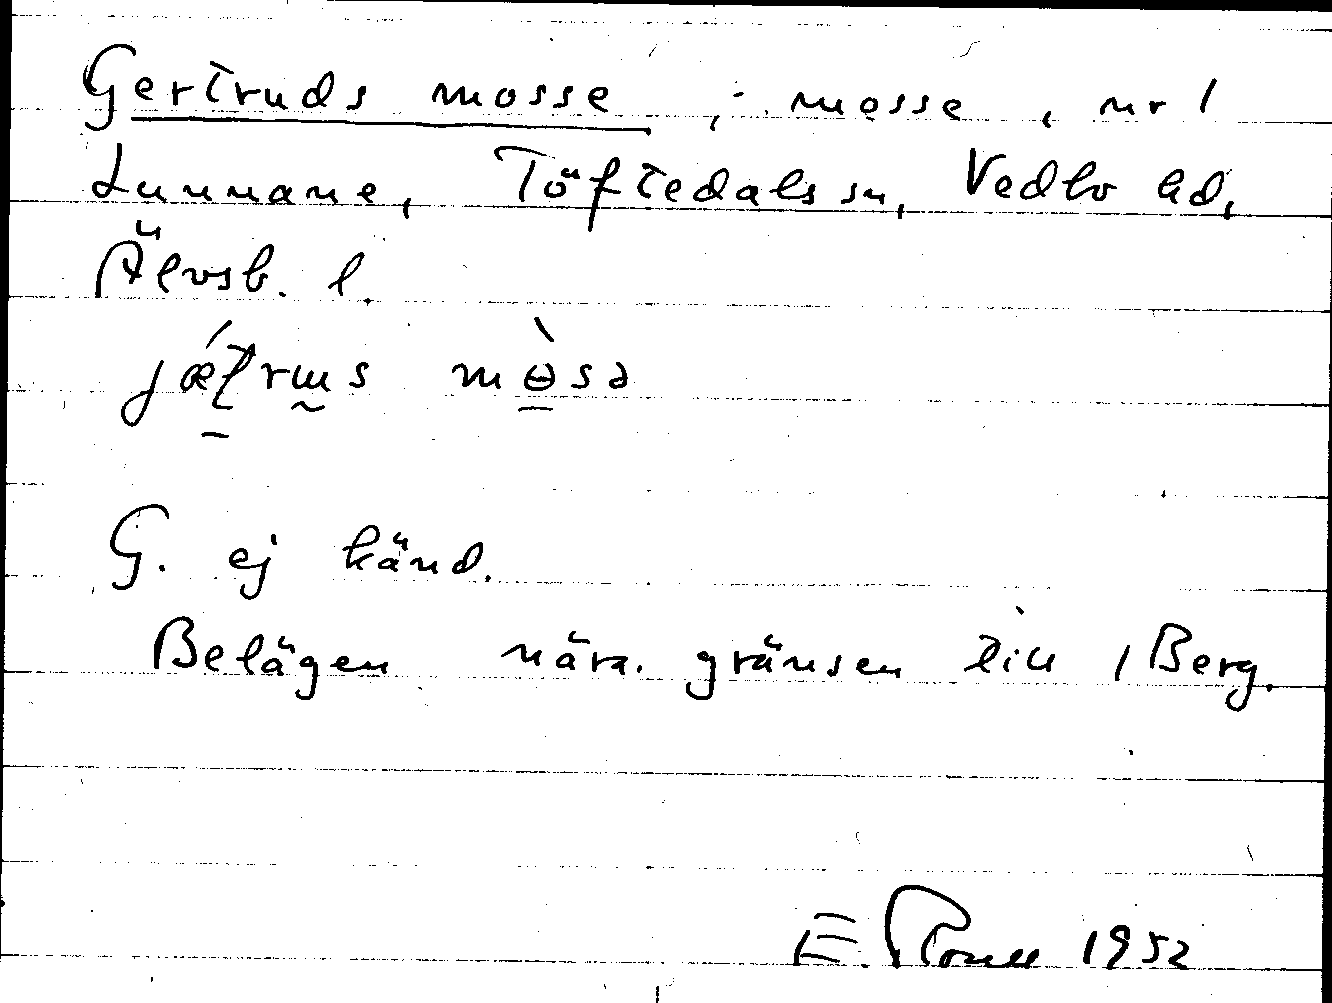 Gertruds mosse, : mosse, nr 1
Lunnane, Töftedals sn, Vedbo hd,
Älvsb. l.
mɵ̀sə
G. ej känd.
Belägen nära gränsen till 1 Berg.
E. 1952